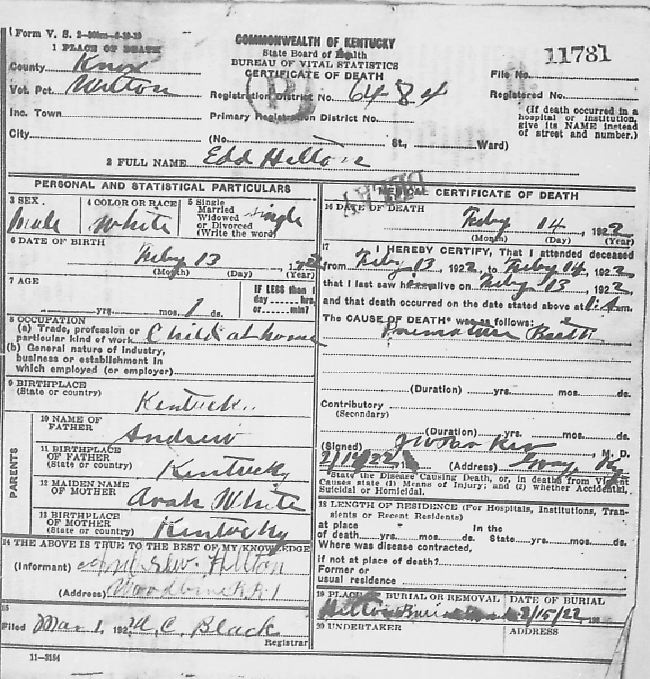 Form V. S.
COMMONWEALTH OF KENTUCKY
State Board of Health
BUREAU OF VITAL STATISTICS
CERTIFICATE OF DEATH
11781
1 PLACE OF DEATH
County Knox
Vot. Pct. Wilton
Inc. Town
City
Registration District No. 6484
Primary Registration District No.
(No. St., Ward)
File No.
Registered No.
(If death occurred in a
hospital or institution,
give its NAME instead
of street and number.)
2 FULL NAME Edd Hilton
PERSONAL AND STATISTICAL PARTICULARS
3 SEX
Male
4 COLOR OR RACE
White
5 Single
Married
Widowed
or Divorced
(Write the word)
Single
6 DATE OF BIRTH
Feby 13
(Month) (Day) (Year)
7 AGE
yrs. mos. 1 ds.
IF LESS than 1
day hrs.
or min.?
8 OCCUPATION
(a) Trade, profession or
particular kind of work Child at home
(b) General nature of industry,
business or establishment in
which employed (or employer)
9 BIRTHPLACE
(State or country)
Kentucky
PARENTS
10 NAME OF
FATHER
Andrew
11 BIRTHPLACE
OF FATHER
(State or country)
Kentucky
12 MAIDEN NAME
OF MOTHER
White
13 BIRTHPLACE
OF MOTHER
(State or country)
Kentucky
14 THE ABOVE IS TRUE TO THE BEST OF MY KNOWLEDGE
(Informant) Hilton
(Address) Woodbine R. 1
15
Filed Mar 1, 192 Black
Registrar
11-3184
MEDICAL CERTIFICATE OF DEATH
16 DATE OF DEATH
Feby 14, 1922
(Month) (Day) (Year)
17 I HEREBY CERTIFY, That I attended deceased
from Feby 13, 1922, to Feby 14, 1922,
that I last saw h alive on Feby 13, 1922,
and that death occurred on the date stated above at m.
The CAUSE OF DEATH* was as follows:
Premature Birth
(Duration) yrs. mos. ds.
Contributory
(Secondary)
(Duration) yrs. mos. ds.
(Signed) M. D.
2/14/22, (Address) Gray Ky
*State the Disease Causing Death, or, in deaths from Violent
Causes state (1) Means of Injury; and (2) whether Accidental,
Suicidal or Homicidal.
18 LENGTH OF RESIDENCE (For Hospitals, Institutions, Tran-
sients or Recent Residents)
at place In the
of death yrs. mos. ds. State yrs. mos. ds.
Where was disease contracted,
if not at place of death?
Former or
usual residence
19 PLACE OF BURIAL OR REMOVAL
Hilton
DATE OF BURIAL
2/15/22, 192
20 UNDERTAKER
ADDRESS